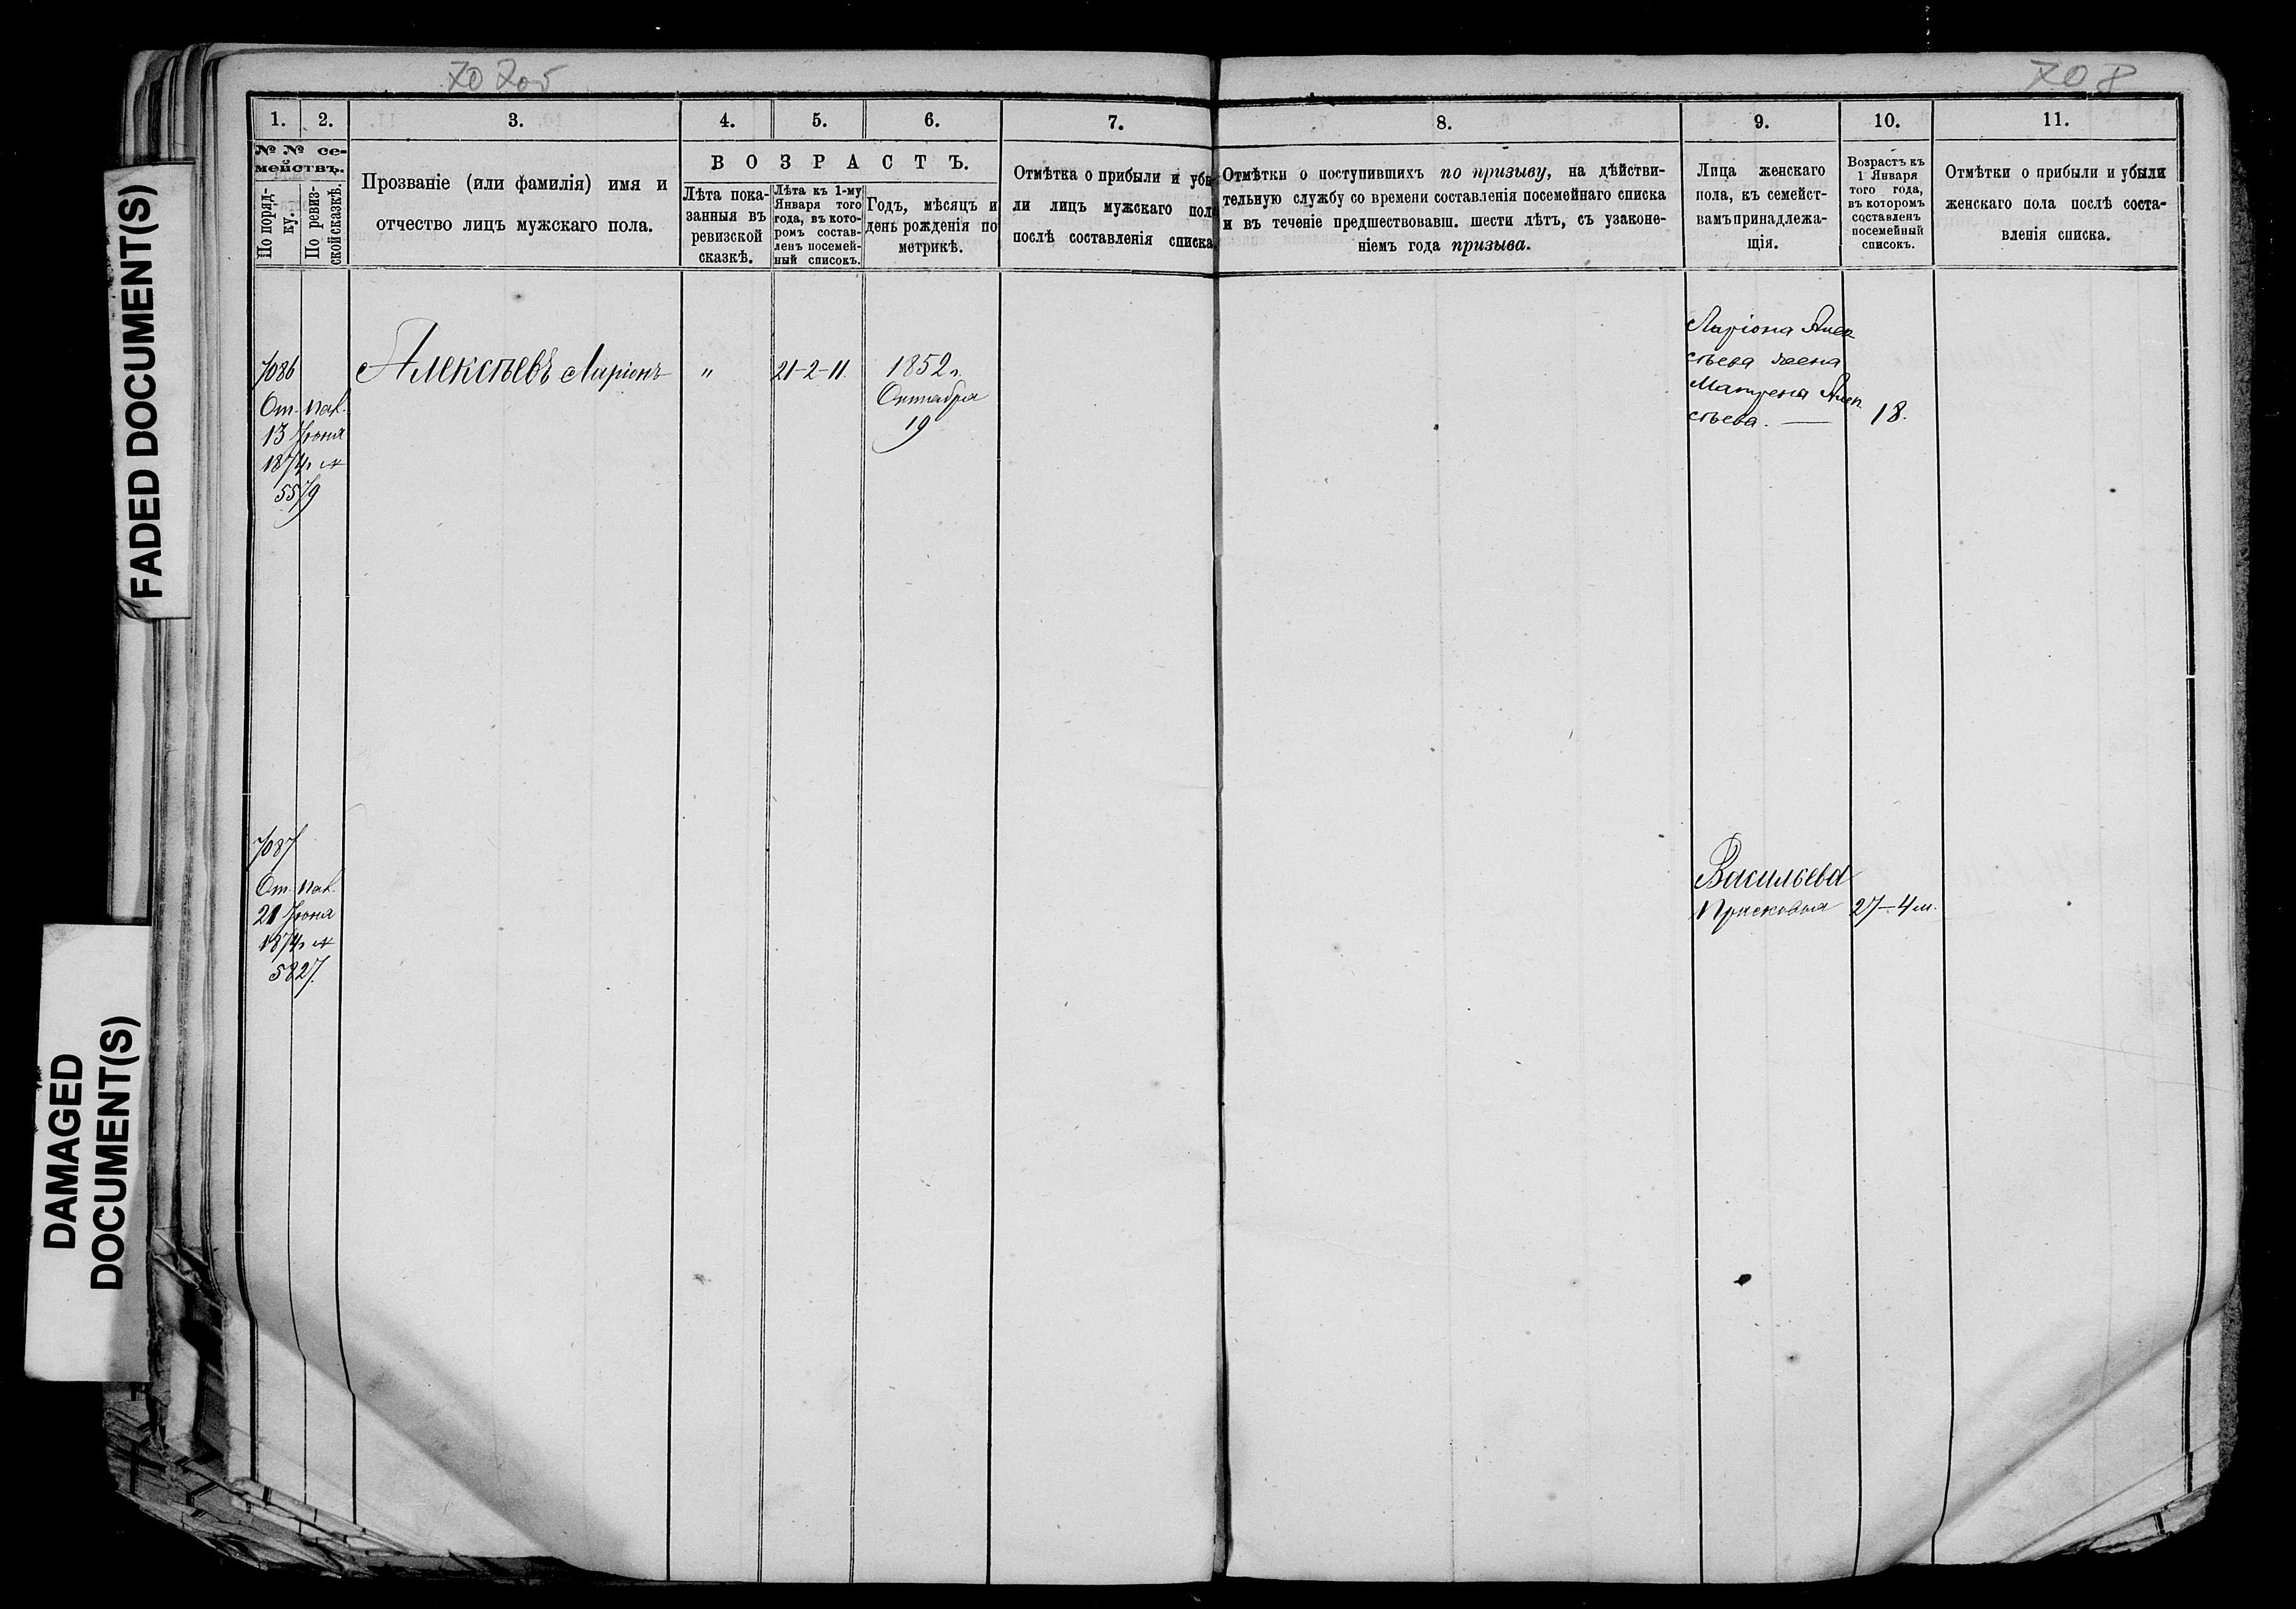 708
1.
2.
3.
4.
5.
6.
7.
8.
9.
10.
11.
№ № се-
мействъ.
По поряд-
ку.
По ревиз-
ской сказкѣ.
Прозваніе (или фамилія) имя и
отчество лицъ мужскаго пола.
ВОЗРАСТЪ.
Лѣта пока-
занныя въ
ревизской
сказкѣ.
Лѣта къ 1-му
Января того
года, въ кото-
ромъ состав-
ленъ посемей-
ный списокъ.
Годъ, мѣсяцъ и
день рожденія по
метрикѣ.
Отмѣтка о прибыли и убы-
ли лицъ мужскаго пола
послѣ составленія списка.
Отмѣтки о поступившихъ по призыву, на дѣйстви-
тельную службу со времени составленія посемейнаго списка
и въ теченіе предшествовавш. шести лѣтъ, съ узаконе-
ніемъ года призыва.
Лица женскаго
пола, къ семейст-
вамъ принадлежа-
щія.
Возрастъ къ
1 Января
того года,
въ которомъ
составленъ
посемейный
списокъ.
Отмѣтки о прибыли и убыли
женскаго пола послѣ соста-
вленія списка.
7086
13 Іюня
1874 г. №
5579
Алексѣевъ Ларіонъ
"
21-2-11
1852 г.
Октября
19
Ларіона Алек
сѣева жена
Матрена Алек
сѣева. —
18.
7087
21 Іюня
1874 г. №
5827.
Васильева
Прасковья
27–4 м.
FADED DOCUMENT(S)
DAMAGED
DOCUMENT(S)